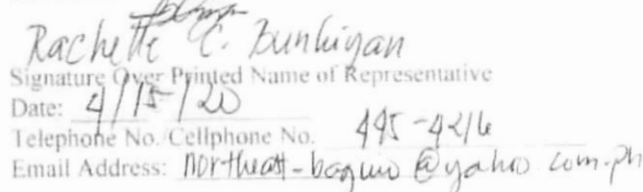 Rachette C. Bunhiyan
Signature Over Printed Name of Representative
Date: 4/15/20
Telephone No./Cellphone No. 445-4216
Email Address: northeast-baguio@yahoo.com.ph